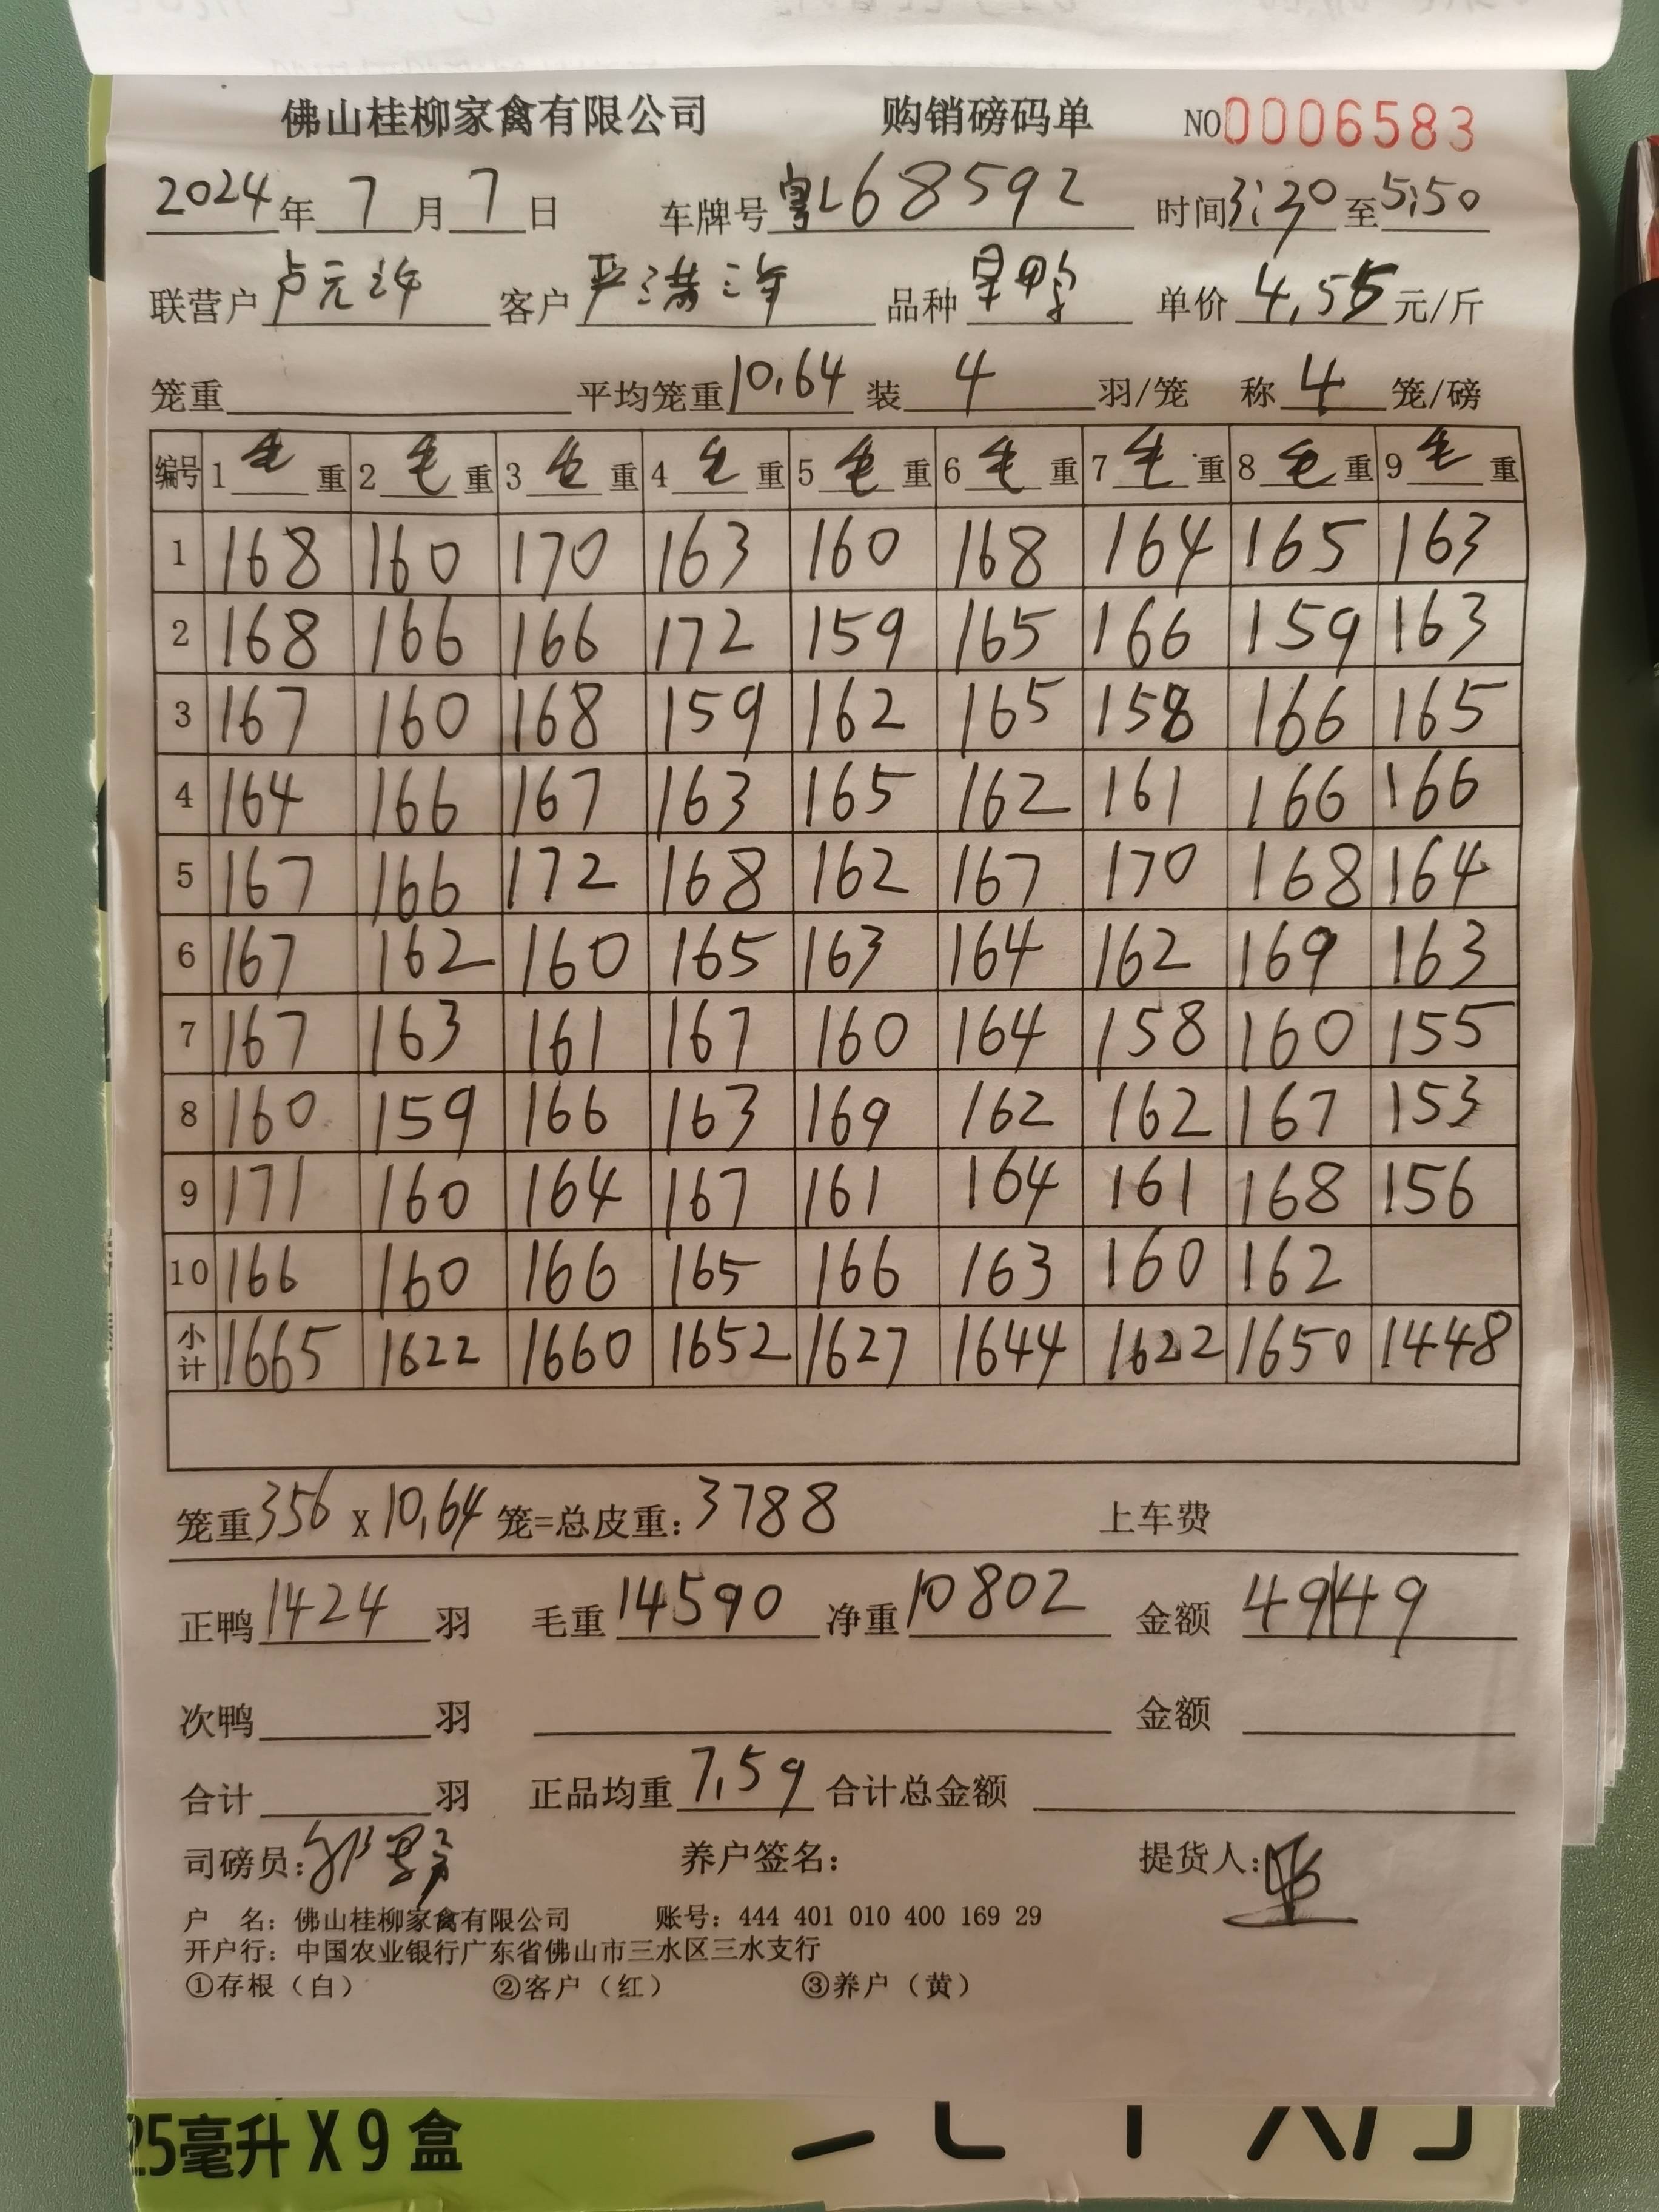 佛山桂柳家禽有限公司 购销磅码单 NO0006583
2024年 7 月 7 日 车牌号 粤L68592 时间3:30至5:50
联营户 卢元 客户 严满 品种 鸭 单价 4.55 元/斤
笼重 平均笼重10.64 装 4 羽/笼 称 4 笼/磅
编号 1 毛 重 2 毛 重 3 毛 重 4 毛 重 5 毛 重 6 毛 重 7 毛 重 8 毛 重 9 毛 重
1 168 160 170 163 160 168 164 165 163
2 168 166 166 172 159 165 166 159 163
3 167 160 168 159 162 165 158 166 165
4 164 166 167 163 165 162 161 166 166
5 167 166 172 168 162 167 170 168 164
6 167 162 160 165 163 164 162 169 163
7 167 163 161 167 160 164 158 160 155
8 160 159 166 163 169 162 162 167 153
9 171 160 164 167 161 164 161 168 156
10 166 160 166 165 166 163 160 162
小计 1665 1622 1660 1652 1627 1644 1622 1650 1448
笼重356 X 10.64 笼=总皮重：3788 上车费
正鸭 1424 羽 毛重 14590 净重 10802 金额 49149
次鸭 羽 金额
合计 羽 正品均重 7.59 合计总金额
司磅员： 养户签名： 提货人：
户 名：佛山桂柳家禽有限公司 账号：444 401 010 400 169 29
开户行：中国农业银行广东省佛山市三水区三水支行
①存根（白） ②客户（红） ③养户（黄）
25毫升X9盒